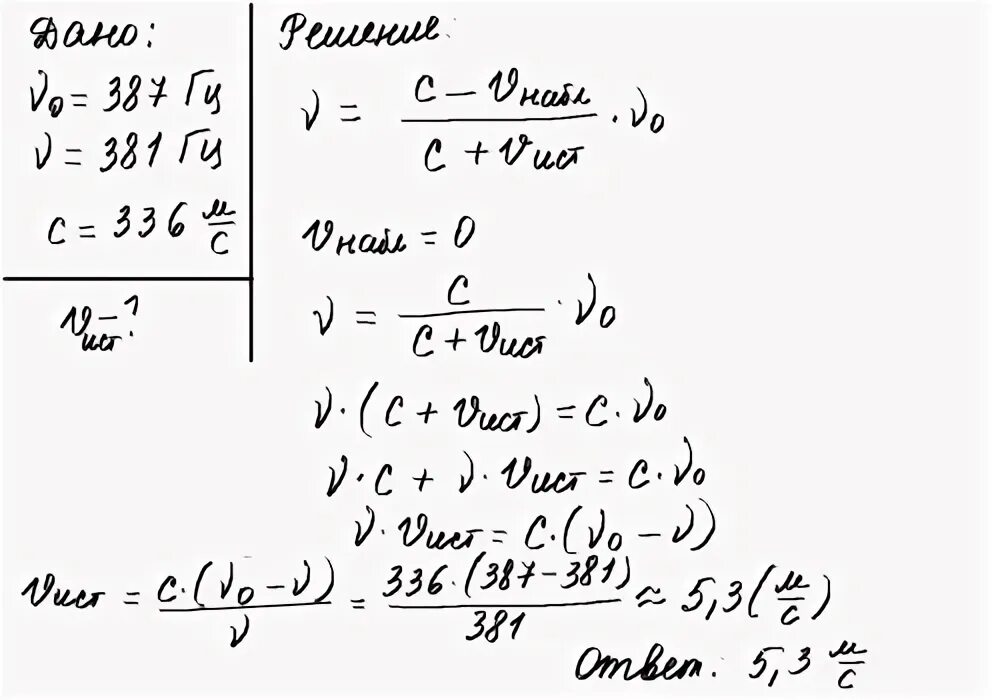 Дано:
ν₀ = 387 Гц
ν = 381 Гц
c = 336 м/с
vист – ?
Решение:
ν = (c – vнабл)/(c + vист) · ν₀
vнабл = 0
ν = c/(c + vист) · ν₀
ν · (c + vист) = c · ν₀
ν · c + ν · vист = c · ν₀
ν · vист = c · (ν₀ – ν)
vист = c · (ν₀ – ν)/ν = 336 · (387 – 381)/381 ≈ 5,3 (м/с)
Ответ: 5,3 м/с